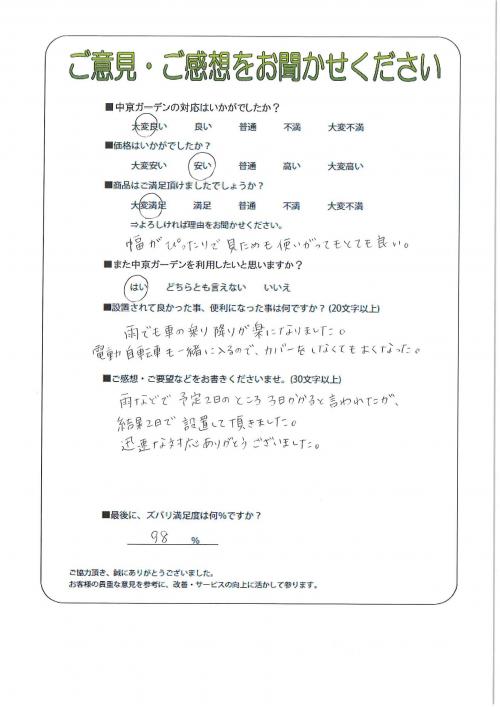 ご意見・ご感想をお聞かせください
■中京ガーデンの対応はいかがでしたか？
大変良い 良い 普通 不満 大変不満
■価格はいかがでしたか？
大変安い 安い 普通 高い 大変高い
■商品はご満足頂けましたでしょうか？
大変満足 満足 普通 不満 大変不満
⇒よろしければ理由をお聞かせください。
幅がぴったりで見ためも使いがってもとても良い。
■また中京ガーデンを利用したいと思いますか？
はい どちらとも言えない いいえ
■設置されて良かった事、便利になった事は何ですか？(20文字以上)
雨でも車の乗り降りが楽になりました。
電動自転車も一緒に入るので、カバーをしなくてもよくなった。
■ご感想・ご要望などをお書きくださいませ。(30文字以上)
雨などで予定2日のところ3日かかると言われたが、
結果2日で設置して頂きました。
迅速な対応ありがとうございました。
■最後に、ズバリ満足度は何%ですか？
98 %
ご協力頂き、誠にありがとうございました。
お客様の貴重な意見を参考に、改善・サービスの向上に活かして参ります。